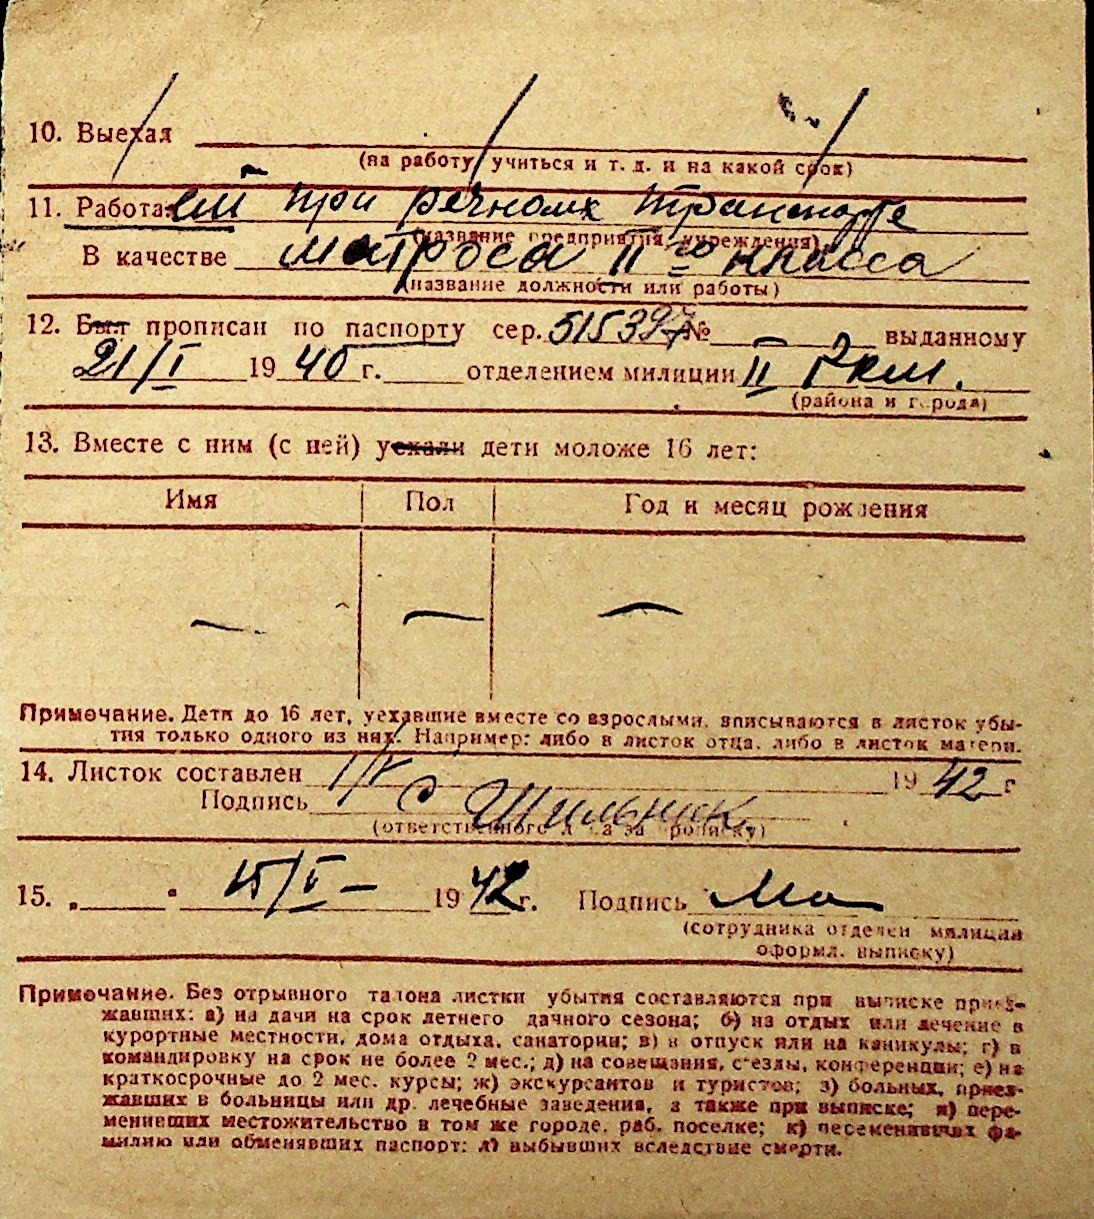 10. Выехал
(на работу учиться и т. д. и на какой срок)
11. Работает при речном транспорте
(название предприятия, учреждения)
В качестве матроса II го класса
(название должности или работы)
12. Был прописан по паспорту сер. 515397 № выданному
21/I 1940 г. отделением милиции II
(района и города)
13. Вместе с ним (с ней) уехали дети моложе 16 лет:
Имя Пол Год и месяц рождения
— — —
Примечание. Дети до 16 лет, уехавшие вместе со взрослыми, вписываются в листок убы-
тия только одного из них. Например: либо в листок отца, либо в листок матери.
14. Листок составлен 1942 г
Подпись Шильник
(ответственного лица за прописку)
15. „ " 15/V — 1942 г. Подпись
(сотрудника отделен милиции
оформл. выписку)
Примечание. Без отрывного талона листки убытия составляются при выписке приез-
жавших: а) на дачи на срок летнего дачного сезона; б) на отдых или лечение в
курортные местности, дома отдыха, санатории; в) в отпуск или на каникулы; г) в
командировку на срок не более 2 мес.; д) на совещания, съезды, конференции; е) на
краткосрочные до 2 мес. курсы; ж) экскурсантов и туристов; з) больных, приез-
жавших в больницы или др. лечебные заведения, а также при выписке; и) пере-
менивших местожительство в том же городе, раб. поселке; к) переменивших фа-
милию или обменявших паспорт; л) выбывших вследствие смерти.